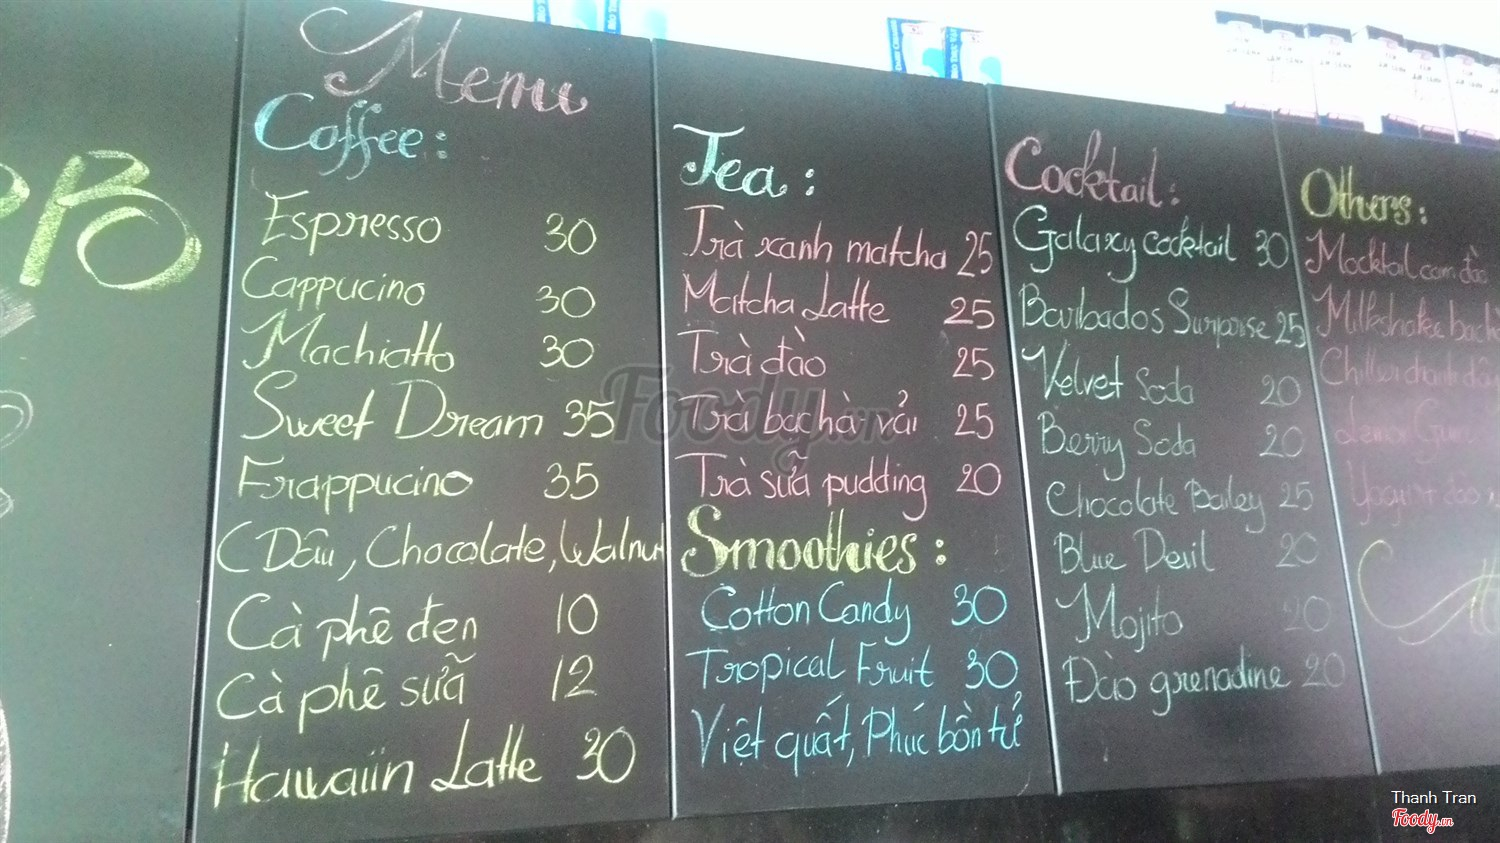 Menu
Coffee:
Espresso 30
Cappucino 30
Machiatto 30
Sweet Dream 35
Frappucino 35
(Dâu, Chocolate, Walnut
Cà phê đen 10
Cà phê sữa 12
Hawaiin Latte 30
Tea:
Trà xanh matcha 25
Matcha Latte 25
Trà đào 25
Trà bạc hà vải 25
Trà sữa pudding 20
Smoothies:
Cotton Candy 30
Tropical Fruit 30
Việt quất, Phúc bồn tử
Cocktail:
Galaxy cocktail 30
Barbados Surprise 25
Velvet Soda 20
Berry Soda 20
Chocolate Bailey 25
Blue Devil 20
Mojito 20
Đào grenadine 20
Others:
Mocktail cam đào
Milkshake bạc h
Chiller chanh dây
Yogurt đào
Foody.vn
Thanh Tran
Foody.vn